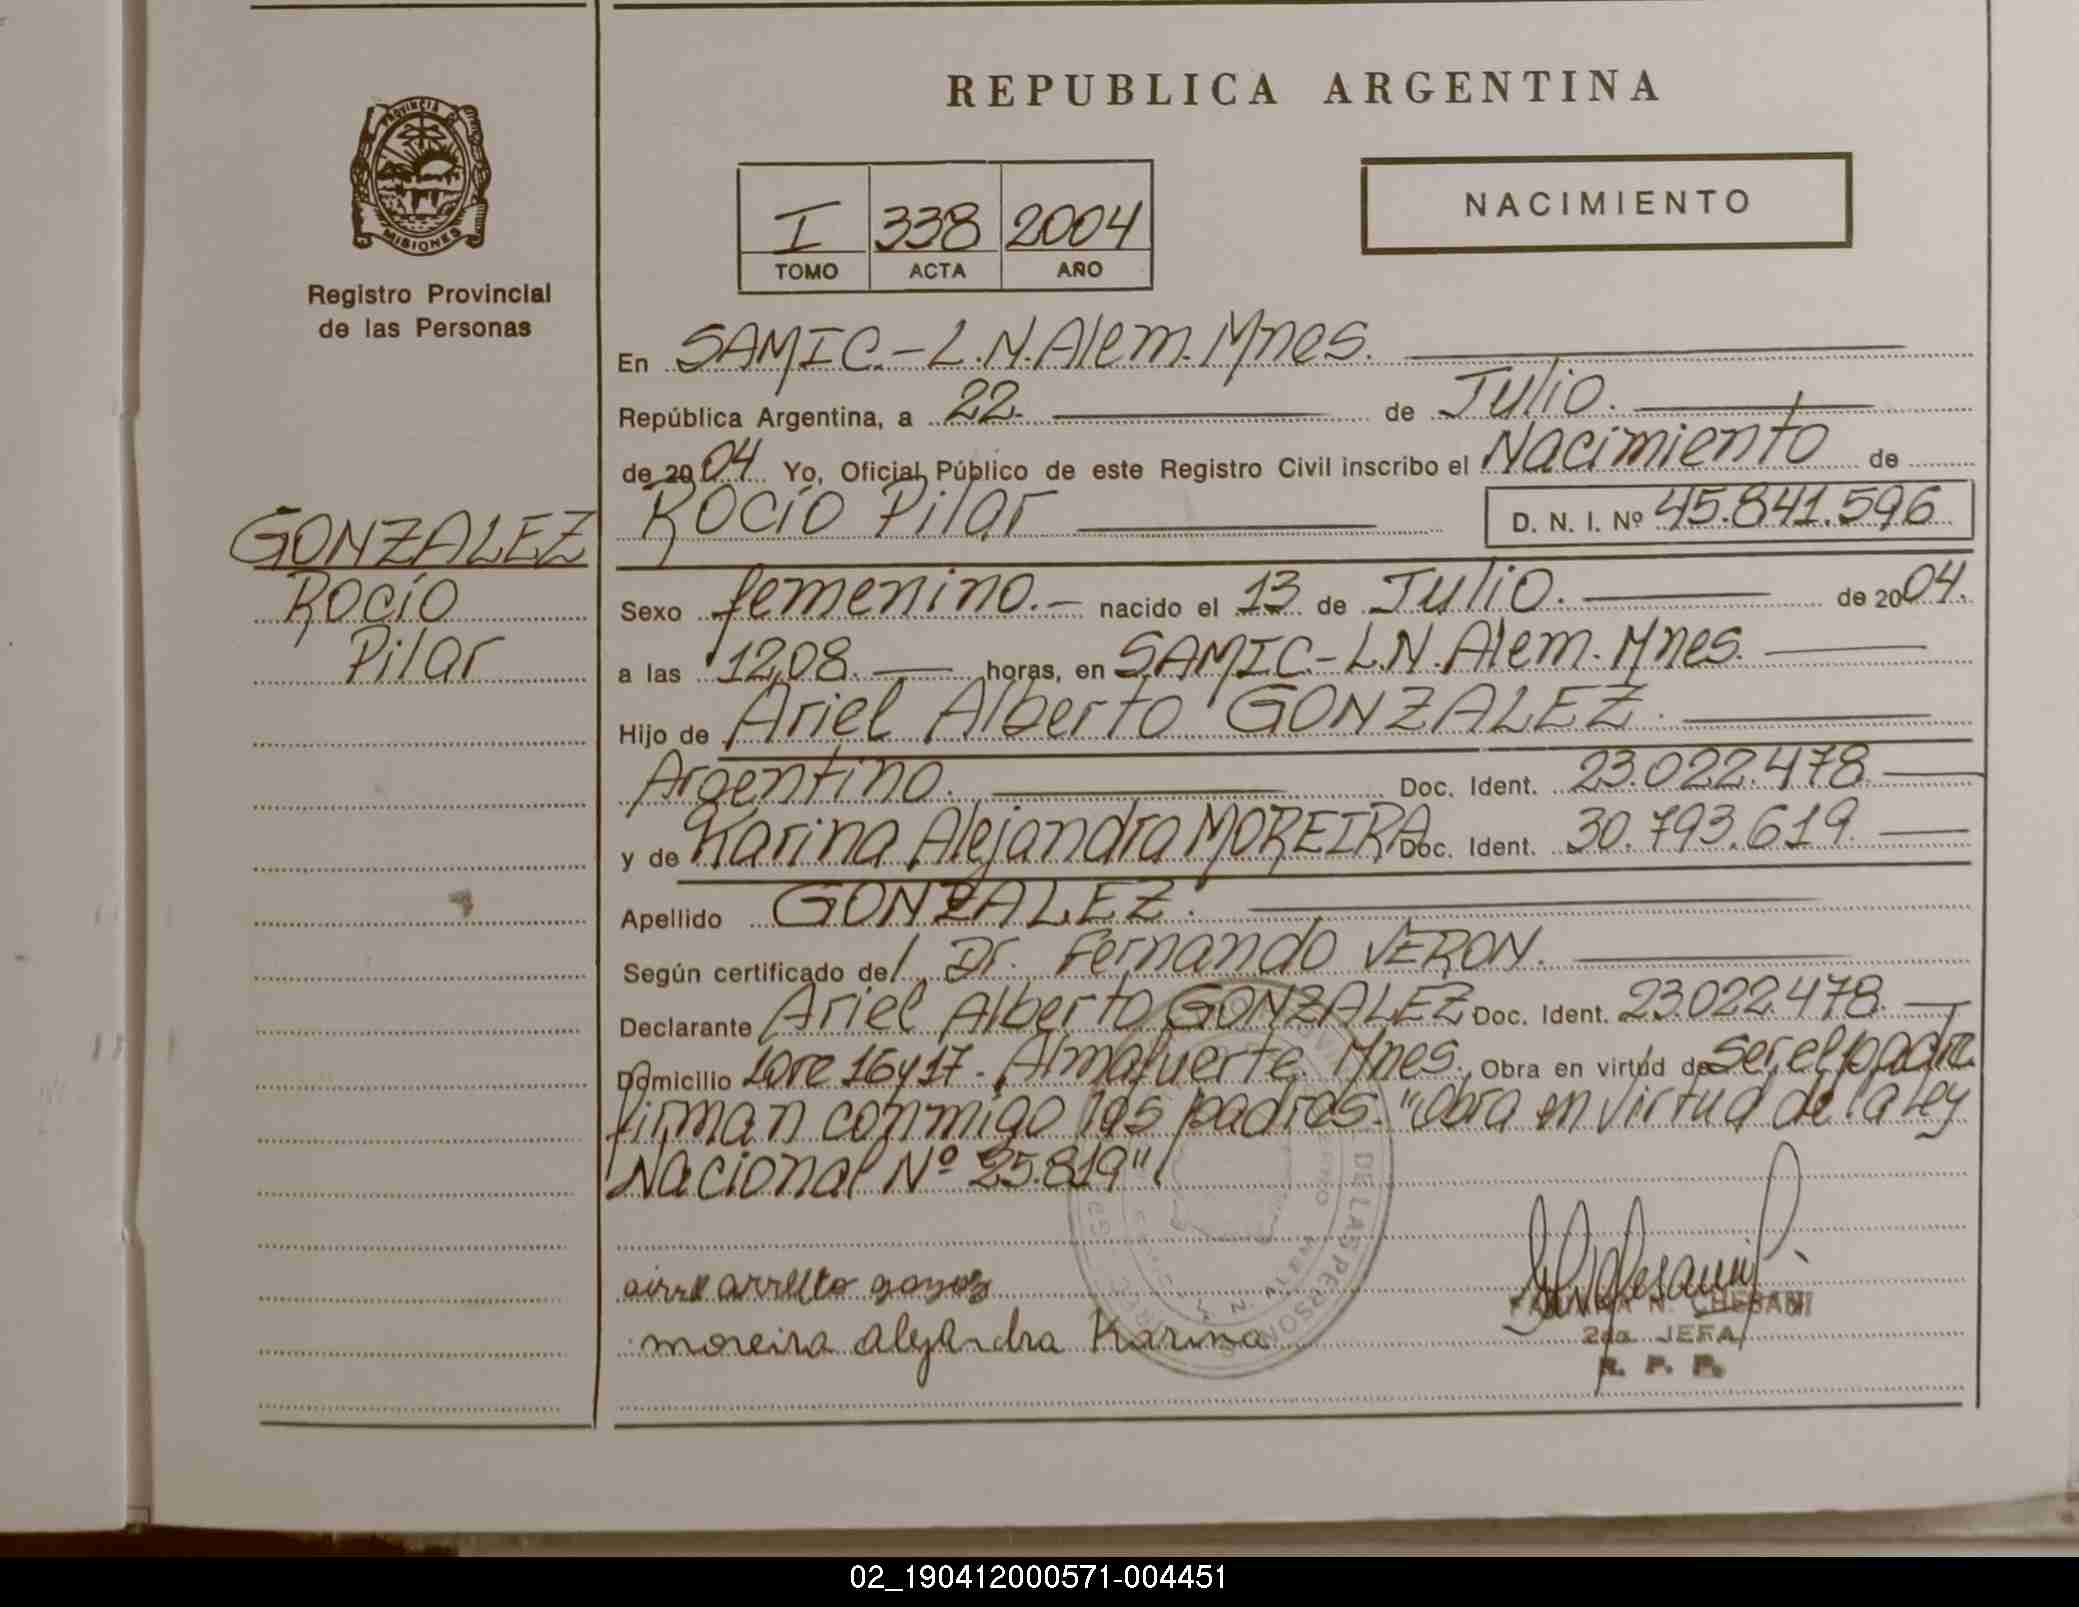 REPUBLICA ARGENTINA
PROVINCIA DE
MISIONES
Registro Provincial
de las Personas
I 338 2004
TOMO ACTA AÑO
NACIMIENTO
En SAMIC.- L.N.Alem. Mnes.
República Argentina, a 22. de Julio.
de 2004. Yo, Oficial Público de este Registro Civil inscribo el Nacimiento de
GONZALEZ
Rocío
Pilar
Rocío Pilar D. N. I. Nº 45.841.596
Sexo femenino.- nacido el 13 de Julio. de 2004.
a las 12,08. horas, en SAMIC.- L.N.Alem. Mnes.
Hijo de Ariel Alberto GONZALEZ.
Argentino. Doc. Ident. 23.022.478
y de Karina Alejandra MOREIRA Doc. Ident. 30.793.619.
Apellido GONZALEZ.
Según certificado del Dr. Fernando VERON.
Declarante Ariel Alberto GONZALEZ Doc. Ident. 23.022.478.
Domicilio Lote 16y17. Almafuerte. Mnes. Obra en virtud de ser el padre
firman conmigo los padres. "Obra en virtud de la ley
Nacional Nº 25.819"
moreira alejandra Karina
DE LAS PERSONAS
N. CHESANI
2da. JEFA
R. P. P.
02_190412000571-004451